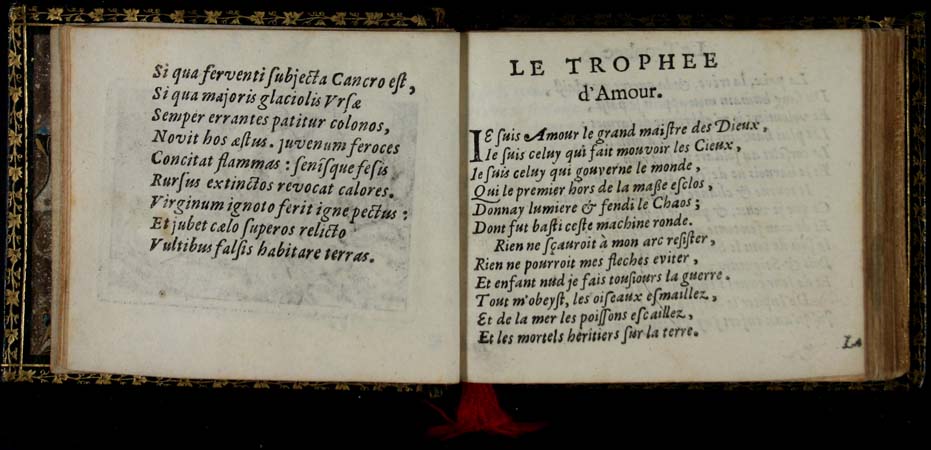 Si qua ferventi ſubjecta Cancro eſt,
Si qua majoris glaciolis Vrſæ
Semper errantes patitur colonos,
Novit hos æſtus. juvenum feroces
Concitat flammas: ſeniſque feſis
Rurſus extinctos revocat calores.
Virginum ignoto ferit igne pectus:
Et jubet cælo ſuperos relicto
Vultibus falſis habitare terras.
LE TROPHEE
d'Amour.
IE ſuis Amour le grand maiſtre des Dieux,
Ie ſuis celuy qui fait mouvoir les Cieux,
Ie ſuis celuy qui gouverne le monde,
Qui le premier hors de la maſſe eſclos,
Donnay lumiere & fendi le Chaos;
Dont fut baſti ceſte machine ronde.
Rien ne ſçauroit à mon arc reſiſter,
Rien ne pourroit mes fleches eviter,
Et enfant nud je fais touſiours la guerre.
Tout m'obeyſt, les oiſeaux eſmaillez,
Et de la mer les poiſſons eſcaillez,
Et les mortels heritiers ſur la terre.
La